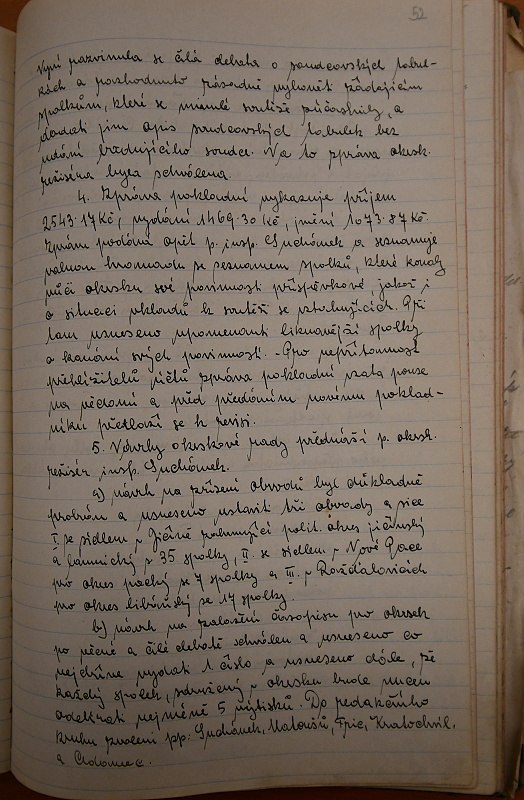 52
Nyní rozvinula se čilá debata o soudcovských tabul-
kách a rozhodnuto zásadně vyhověti žádajícím
spolkům, které se minulé soutěže zúčastnily, a
dodati jim opis soudcovských tabulek bez
udání hodnotícího soudce. Na to zpráva okrsk.
režiséra byla schválena.
4. Zpráva pokladní vykazuje příjem
2543·17 Kč, vydání 1469·30 Kč, jmění 1073·87 Kč.
Zprávu podává opět p. insp. Suchánek a seznamuje
valnou hromadu se seznamem spolků, které konaly
vůči okrsku své povinnosti příspěvkové, jakož i
o situaci vkladů k soutěži se vztahujících. Při
tom usneseno upomenouti liknavější spolky
o konání svých povinností. - Pro nepřítomnost
přehlížitelů účtů zpráva pokladní vzata pouze
na vědomí a před předáním novému poklad-
níku předloží se k revisi.
5. Návrhy okrskové rady přednáší p. okrsk.
režisér insp. Suchánek.
a) návrh na zřízení obvodů byl důkladně
probrán a usneseno ustaviti tři obvody a sice
I. se sídlem v Jičíně zahrnující polit. okres jičínský
a lomnický s 35 spolky, II. se sídlem v Nové Pace
pro okres packý se 7 spolky a III. v Rožďalovicích
pro okres libáňský se 17 spolky.
b) návrh na založení časopisu pro okrsek
po věcné a čilé debatě schválen a usneseno co
nejdříve vydati 1. číslo a usneseno dále, že
každý spolek, sdružený v okrsku bude nucen
odebrati nejméně 5 výtisků. Do redakčního
kruhu zvoleni pp: Suchánek, Matouš, Fric, Kratochvíl,
a